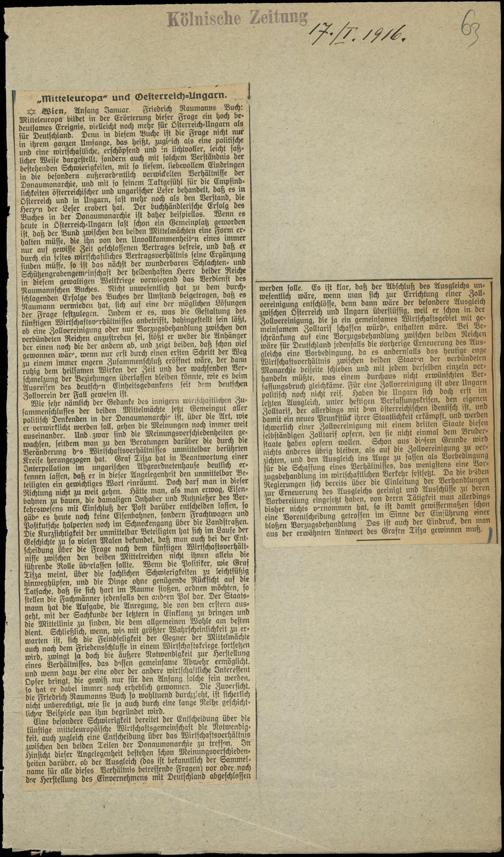 Kölnische Zeitung
17./I. 1916.
63
„Mitteleuropa“ und Oesterreich-Ungarn.
✡ Wien, Anfang Januar. Friedrich Naumanns Buch:
Mitteleuropa bildet in der Erörterung dieser Frage ein hoch be-
deutsames Ereignis, vielleicht noch mehr für Österreich-Ungarn als
für Deutschland. Denn in diesem Buch ist die Frage nicht nur
in ihrem ganzen Umfange, das heißt, zugleich als eine politische
und eine wirtschaftliche, erschöpfend und in lichtvoller, leicht faß-
licher Weise dargestellt, sondern auch mit solchem Verständnis der
bestehenden Schwierigkeiten, mit so tiefem, liebevollem Eindringen
in die besonders außerordentlich verwickelten Verhältnisse der
Donaumonarchie, und mit so feinem Taktgefühl für die Empfind-
lichkeiten österreichischer und ungarischer Leser behandelt, daß es in
Österreich und in Ungarn, fast mehr noch als den Verstand, die
Herzen der Leser erobert hat. Der buchhändlerische Erfolg des
Buches in der Donaumonarchie ist daher beispiellos. Wenn es
heute in Österreich-Ungarn fast schon ein Gemeinplatz geworden
ist, daß der Bund zwischen den beiden Mittelmächten eine Form er-
halten müsse, die ihn von den Unvollkommenheiten eines immer
nur auf gewisse Zeit geschlossenen Vertrages befreie, und daß er
durch ein festes wirtschaftliches Vertragsverhältnis seine Ergänzung
finden müsse, so ist das nächst der wunderbaren Schlachten- und
Schützengrabengemeinschaft der heldenhaften Heere beider Reiche
in diesem gewaltigen Weltkriege vorwiegend das Verdienst des
Naumannschen Buches. Nicht unwesentlich hat zu dem durch-
schlagenden Erfolge des Buches der Umstand beigetragen, daß es
Naumann vermieden hat, sich auf eine der möglichen Lösungen
der Frage festzulegen. Indem er es, was die Gestaltung des
künftigen Wirtschaftsverhältnisses anbetrifft, dahingestellt sein läßt,
ob eine Zollvereinigung oder nur Vorzugsbehandlung zwischen den
verbündeten Reichen anzustreben sei, stößt er weder die Anhänger
der einen noch die der andern ab, und zeigt daß, daß schon viel
gewonnen wär', wenn nur erst durch einen ersten Schritt der Weg
zu einem immer engern Zusammenschluß eröffnet wäre, der dann
ruhig dem heilsamen Wirken der Zeit und der wachsenden Ver-
schmelzung der Beziehungen überlassen bleiben könnte, wie es beim
Ausreifen des deutschen Einheitsgedankens seit dem deutschen
Zollverein der Fall gewesen ist.
Wie sehr nämlich der Gedanke des innigern wirtschaftlichen Zu-
sammenschlusses der beiden Mittelmächte jetzt Gemeingut aller
politisch Denkenden in der Donaumonarchie ist, über die Art, wie
er verwirklicht werden soll, gehen die Meinungen noch immer weit
auseinander. Und zwar sind die Meinungsverschiedenheiten ge-
wachsen, seitdem man zu den Beratungen darüber die durch die
Veränderung des Wirtschaftsverhältnisses unmittelbar berührten
Kreise herangezogen hat. Graf Tisza hat in Beantwortung einer
Interpellation im ungarischen Abgeordnetenhause deutlich er-
kennen lassen, daß er in dieser Angelegenheit den unmittelbar Be-
teiligten ein gewichtiges Wort einräumt. Doch darf man in dieser
Richtung nicht zu weit gehen. Hätte man, als man erwog, Eisen-
bahnen zu bauen, die damaligen Inhaber und Nutznießer des Ver-
kehrswesens mit Einschluß der Post darüber entscheiden lassen, so
gäbe es heute noch keine Eisenbahnen, sondern Frachtwagen und
Postkutsche holperten noch im Schneckengang über die Landstraßen.
Die Kurzsichtigkeit der unmittelbar Beteiligten hat sich im Laufe der
Geschichte zu so vielen Malen bekundet, daß man auch bei der Ent-
scheidung über die Frage nach dem künftigen Wirtschaftsverhält-
nisse zwischen den beiden Mittelreichen nicht ihnen allein die
führende Rolle überlassen sollte. Wenn die Politiker, wie Graf
Tisza meint, über die sachlichen Schwierigkeiten zu leichtfüßig
hinweghüpfen, und die Dinge ohne genügende Rücksicht auf die
Tatsache, daß sie sich hart im Raume stoßen, ordnen möchten, so
stellen die Fachmänner jedenfalls den andern Pol dar. Der Staats-
mann hat die Aufgabe, die Anregung, die von den erstern aus-
geht, mit der Sachkunde der letztern in Einklang zu bringen und
die Mittellinie zu finden, die dem allgemeinen Wohle am besten
dient. Schließlich, wenn, wie mit größter Wahrscheinlichkeit zu er-
warten ist, sich die Feindseligkeit der Gegner der Mittelmächte
auch nach dem Friedensschlusse in einem Wirtschaftskriege fortsetzen
wird, zwingt ja doch die äußere Notwendigkeit zur Herstellung
eines Verhältnisses, das dessen gemeinsame Abwehr ermöglicht,
und wenn dazu der eine oder der andere wirtschaftliche Interessent
Opfer bringt, die gewiß nur für den Anfang solche sein werden,
so hat er dabei immer noch erheblich gewonnen. Die Zuversicht,
die Friedrich Naumanns Buch so wohltuend durchzieht, ist sicherlich
nicht unberechtigt, wie sie ja auch durch eine lange Reihe geschicht-
licher Beispiele von ihm begründet wird.
Eine besondere Schwierigkeit bereitet der Entscheidung über die
künftige mitteleuropäische Wirtschaftsgemeinschaft die Notwendig-
keit, auch zugleich eine Entscheidung über das Wirtschaftsverhältnis
zwischen den beiden Teilen der Donaumonarchie zu treffen. In
Hinsicht dieser Angelegenheit bestehen schon Meinungsverschieden-
heiten darüber, ob der Ausgleich (das ist bekanntlich der Sammel-
name für alle dieses Verhältnis betreffende Fragen) vor oder nach
der Herstellung des Einvernehmens mit Deutschland abgeschlossen
werden solle. Es ist klar, daß der Abschluß des Ausgleichs un-
wesentlich wäre, wenn man sich zur Errichtung einer Zoll-
vereinigung entschlösse, denn dann wäre der besondere Ausgleich
zwischen Österreich und Ungarn überflüssig, weil er schon in der
Zollvereinigung, die ja ein gemeinsames Wirtschaftsgebiet mit ge-
meinsamem Zolltarif schaffen würde, enthalten wäre. Bei Be-
schränkung auf eine Vorzugsbehandlung zwischen beiden Reichen
wäre für Deutschland jedenfalls die vorherige Erneuerung des Aus-
gleichs eine Vorbedingung, da es andernfalls das heutige enge
Wirtschaftsverhältnis zwischen den beiden Staaten der verbündeten
Monarchie beiseite schieben und mit jedem derselben einzeln ver-
handeln müßte, was einem durchaus nicht erwünschten Ver-
fassungsbruch gleichkäme. Für eine Zollvereinigung ist aber Ungarn
politisch noch nicht reif. Haben die Ungarn sich doch erst im
letzten Ausgleich, unter heftigen Verfassungskrisen, den eigenen
Zolltarif, der allerdings mit dem österreichischen identisch ist, und
damit ein neues Prunkstück ihrer Staatlichkeit erkämpft, und werden
ohne einer Zollvereinigung mit einem dritten Staate diesen
selbständigen Zolltarif opfern, den sie nicht einmal dem Bruder-
staate haben opfern wollen. Schon aus diesem Grunde wird
nichts anderes übrig bleiben, als auf die Zollvereinigung zu ver-
zichten, und den Ausgleich ins Auge zu fassen als Vorbedingung
für die Schaffung eines Verhältnisses, das wenigstens eine Vor-
zugsbehandlung im wirtschaftlichen Verkehr festsetzt. Da die beiden
Regierungen sich bereits über die Einleitung der Verhandlungen
zur Erneuerung des Ausgleichs geeinigt und Ausschüsse zu deren
Vorbereitung eingesetzt haben, von deren Tätigkeit man allerdings
bisher nichts vernommen hat, so ist damit gewissermaßen schon
eine Vorentscheidung getroffen im Sinne der Einführung einer
bloßen Vorzugsbehandlung. Das ist auch der Eindruck, den man
aus der erwähnten Antwort des Grafen Tisza gewinnen muß.